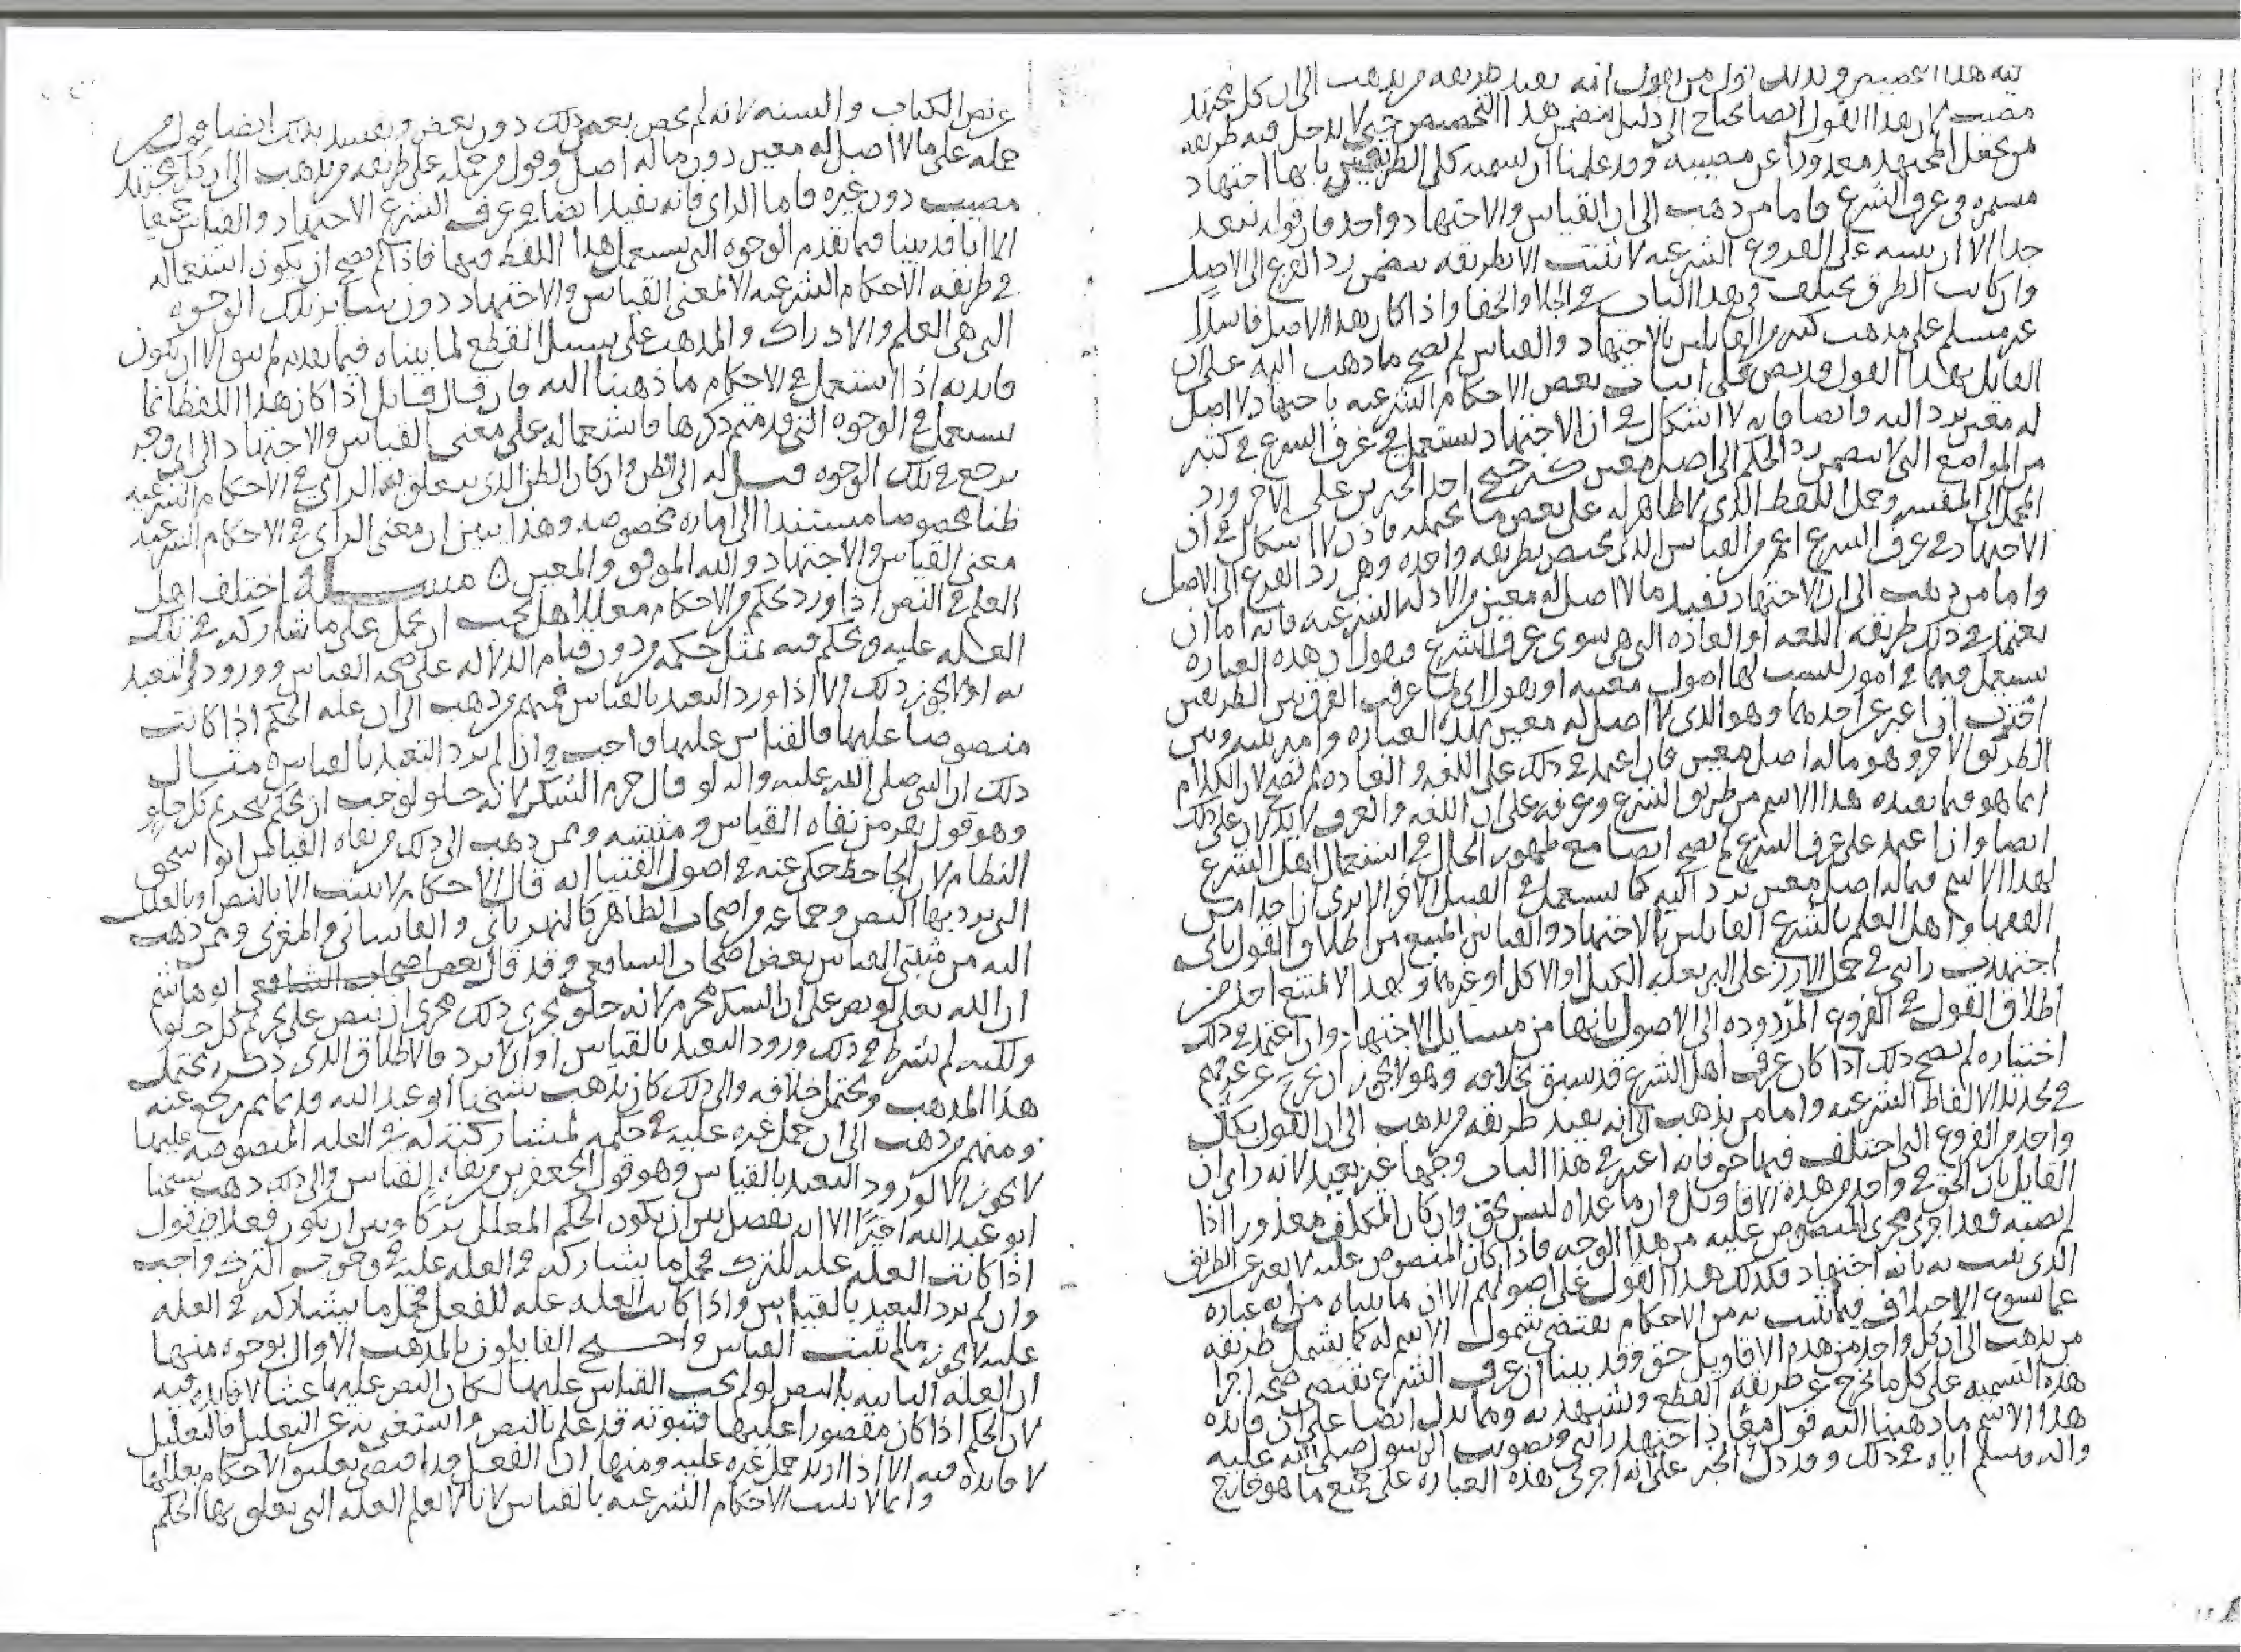 فيه هذا التخصيص وبذلك قول من يقول انه يفيد طريقه من يذهب الى ان كل مجتهد
مصيب لان هذا القول ايضا يحتاج الى دليل يتضمن هذا التخصيص حتى لا يدخل فيه طريقه
من يجعل المجتهد معذورا عن مصيبه وقد علمنا ان تسميه كلى الطريقين بانها اجتهاد
مستمره في عرف الشرع فاما من ذهب الى ان القياس والاجتهاد واحد فان قوله يبعد
جدا الا ان يبينه على ان الفروع الشرعيه لا تثبت الا بطريقه تتضمن رد الفرع الى الاصل
وان كانت الطرق تختلف في هذا الباب في الجلا والخفا واذا كان هذا الاصل فاسدا
غير مسلم على مذهب كثير من القايلين بالاجتهاد والقياس لم يصح ما ذهب اليه على ان
القايل بهذا القول قد نص على اثبات بعض الاحكام الشرعيه باجتهاد لا اصل
له معين يرد اليه وايضا فانه لا اشكال في ان الاجتهاد يستعمل في عرف الشرع في كثير
من المواضع التي لا تتضمن رد الحكم الى اصل معين كترجيح احد الخبرين على الاخر ورد
المجمل الى المفسر وحمل اللفظ الذي لا ظاهر له على بعض ما يحتمله فاذن لا اشكال في ان
الاجتهاد في عرف الشرع اعم من القياس الذي يختص بطريقه واحده وهي رد الفرع الى الاصل
واما من ذهب الى ان الاجتهاد يفيد ما لا اصل له معين من الادله الشرعيه فانه اما ان
يعتمد في ذلك طريقه اللغه او العاده التي هي سوى عرف الشرع فيقول ان هذه العباره
تستعمل فيهما في امور ليست لها اصول معينه او يقول اني لما عرفت الفرق بين الطريقين
اخترت ان اعبر عن احدهما وهو الذي لا اصل له معين بهذه العباره وافرق بينه وبين
الطريق الاخر وهو ماله اصل معين فان اعتمد في ذلك على اللغه والعاده لم يصح لان الكلام
انما هو فيما يفيده هذا الاسم من طريق الشرع وعرفه على ان اللغه والعرف لا يدلان على ذلك
ايضا وان اعتمد على عرف الشرع لم يصح ايضا مع ظهور الحال في استعمال اهل الشرع
لهذا الاسم فيما له اصل معين يرد اليه كما يستعمل في القسم الاخر الا ترى ان احدا من
الفقها واهل العلم بالشرع القايلين بالاجتهاد والقياس لا يمتنع من اطلاق القول باني
اجتهدت رايي في حمل الارز على البر بعله الكيل او الاكل او غيرهما ولهذا لا يمتنع احد من
اطلاق القول في الفروع المردوده الى الاصول بانها من مسايل الاجتهاد وان اعتمد في ذلك
اختياره لم يصح ذلك اذا كان عرف اهل الشرع قد سبق بخلافه وهو لا يجوز ان يخرج عن عرفهم
في تحديد الالفاظ الشرعيه واما من يذهب الى انه يفيد طريقه من يذهب الى ان القول بكل
واحد من الفروع التي اختلف فيها حق فانه اعتبر في هذا الباب وجها غير بعيد لانه راى ان
القايل بان الحق في واحد من هذه الاقاويل وان ما عداه ليس بحق وان كان المكلف معذورا اذا
لم يصبه فقد اجرى مجرى المنصوص عليه من هذا الوجه فاذا كان المنصوص عليه لا يعبر عن الطريق
الذي يثبت به بانه اجتهاد فكذلك هذا القول على اصولهم الا ان ما بيناه من انه عباره
عما يسوغ الاختلاف فيما يثبت به من الاحكام يقتضي شمول الاسم له كما يشمل طريقه
من يذهب الى ان كل واحد من هذه الاقاويل حق وقد بينا ان عرف الشرع يقتضي صحه اجرا
هذه التسميه على كل ما يخرج عن طريقه القطع ويشهد به ومما يدل ايضا على ان فايده
هذا الاسم ما ذهبنا اليه قول معاذ اجتهد رايي وتصويب الرسول صلى الله عليه
واله وسلم اياه في ذلك وقد دل الخبر على انه اجرى هذه العباره على جميع ما هو خارج
عن نص الكتاب والسنه لانه لم يخص بعض ذلك دون بعض ويفسد بذلك ايضا قول من
حمله على ما لا اصل له معين دون ما له اصل وقول من حمله على طريقه من يذهب الى ان كل مجتهد
مصيب دون غيره فاما الراى فانه يفيد ايضا في عرف الشرع الاجتهاد والقياس جميعا
الا انا قد بينا فيما تقدم الوجوه التي يستعمل هذا اللفظ فيها فاذا لم يصح ان يكون استعماله
في طريقه الاحكام الشرعيه الا لمعنى القياس والاجتهاد دون ساير تلك الوجوه
التي هي العلم والادراك والمذهب على سبيل القطع لما بيناه فيما تقدم لم يبق الا ان تكون
فايدته اذا استعمل في الاحكام ما ذهبنا اليه فان قال قايل اذا كان هذا اللفظ انما
يستعمل في الوجوه التي قدمتم ذكرها فاستعماله على معنى القياس والاجتهاد الى اي وجه
يرجع في تلك الوجوه قيل له الى الظن وان كان الظن الذي يتعلق به الراي في الاحكام الشرعيه
ظنا مخصوصا مستندا الى اماره مخصوصه وهذا يبين ان معنى الراى في الاحكام الشرعيه
معنى القياس والاجتهاد والله الموفق والمعين ه مسله اختلف اهل
العلم في النص اذا ورد بحكم من الاحكام معللا هل يجب ان يحمل على ما شاركه في تلك
العله عليه ويحكم فيه بمثل حكمه من دون قيام الدلاله على صحه القياس وورود التعبد
به او لا يجوز ذلك الا اذا ورد التعبد بالقياس فمنهم من ذهب الى ان عله الحكم اذا كانت
منصوصا عليها فالقياس عليها واجب وان لم يرد التعبد بالقياس ه مثال
ذلك ان النبي صلى الله عليه واله لو قال حرم السكر لانه حلو لوجب ان يحكم بتحريم كل حلو
وهو قول نفر من نفاه القياس ومثبتيه وممن ذهب الى ذلك من نفاه القياس ابو اسحق
النظام لان الجاحظ حكى عنه في اصول الفتيا انه قال الاحكام لا تثبت الا بالنص او بالعلل
التي يرد بها النص وجماعه من اصحاب الظاهر كالنهرباني والقاساني والمغربي وممن ذهب
اليه من مثبتي القياس بعض اصحاب الشافعي وقد قال بعض اصحاب الشافعي ابو هاشم
ان الله تعلى لو نص على ان السكر محرم لانه حلو يجرى ذلك مجرى ان ينص على تحريم كل حلو
ولكنه لم يشرط في ذلك ورود التعبد بالقياس او ان لا يرد فالاطلاق الذي ذكره يحتمل
هذا المذهب ويحتمل خلافه والى ذلك كان يذهب شيخنا ابو عبد الله قديما ثم رجع عنه
ومنهم من ذهب الى ان حمل غيره عليه في حكمه لمشاركته له في العله المنصوصه عليها
لا يجوز الا لورود التعبد بالقياس وهو قول الجعفرين من نفاه القياس والى ذلك ذهب شيخنا
ابو عبد الله اخيرا الا انه يفصل بين ان يكون الحكم المعلل تركا وبين ان يكون فعلا فيقول
اذا كانت العله عله للترك فحمل ما يشاركه في العله عليه في وجوب الترك واجب
وان لم يرد التعبد بالقياس واذا كانت العله عله للفعل فحمل ما يشاركه في العله
عليه لا يجوز ما لم يثبت القياس واحتج القايلون بالمذهب الاول بوجوه منها
ان العله الثابته بالنص لو لم يجب القياس عليها لكان النص عليها عبثا لا فايده فيه
لان الحكم اذا كان مقصورا عليها فثبوته قد علم بالنص واستغنى به عن التعليل فالتعليل
لا فايده فيه الا اذا اريد حمل غيره عليه ومنها ان الفعل قد اقتضى تعليق الاحكام بعللها
وانما لا تثبت الاحكام الشرعيه بالقياس لانا لا نعلم العله التي يتعلق بها الحكم